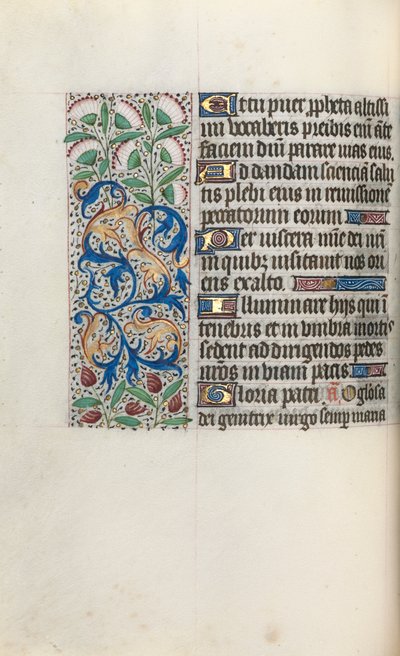 Et tu puer ꝓpheta altissi
mi vocaberis preibis eni͂ a͂te
faciem dn͂i parare vias eius.
Ad dandam scienciā salu
tis plebi eius in remissione
peccatorum eorum
Per viscera mīe dei nr͂i
in quibꝫ visitavit nos ori
ens ex alto.
Illuminare hijs qui ī
tenebris et in umbra mortis
sedent ad dirigendos pedes
nr͂os in viam pacis
Gloria patri. a͂. O glōsa
dei genitrix virgo semp̱ maria